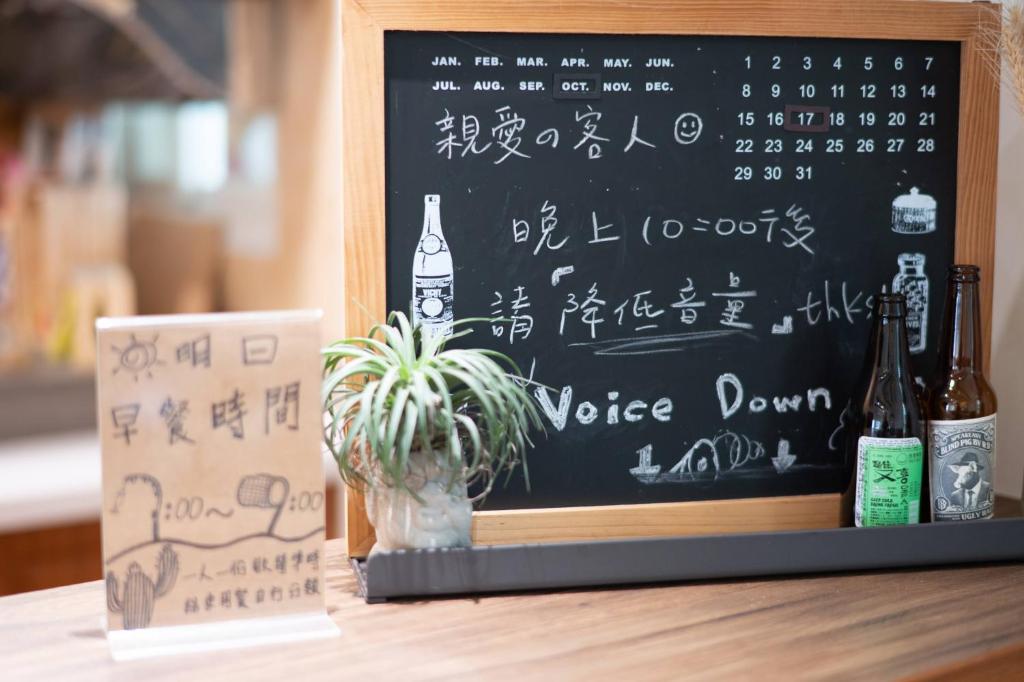 JAN. FEB. MAR. APR. MAY. JUN.
JUL. AUG. SEP. OCT. NOV. DEC.
1 2 3 4 5 6 7
8 9 10 11 12 13 14
15 16 17 18 19 20 21
22 23 24 25 26 27 28
29 30 31
親愛の客人
晚上 10:00 後
請「降低音量」thks
Voice Down
明日
早餐時間
7:00~9:00
一人一份
自行
雙
BLIND PIG
UGLY